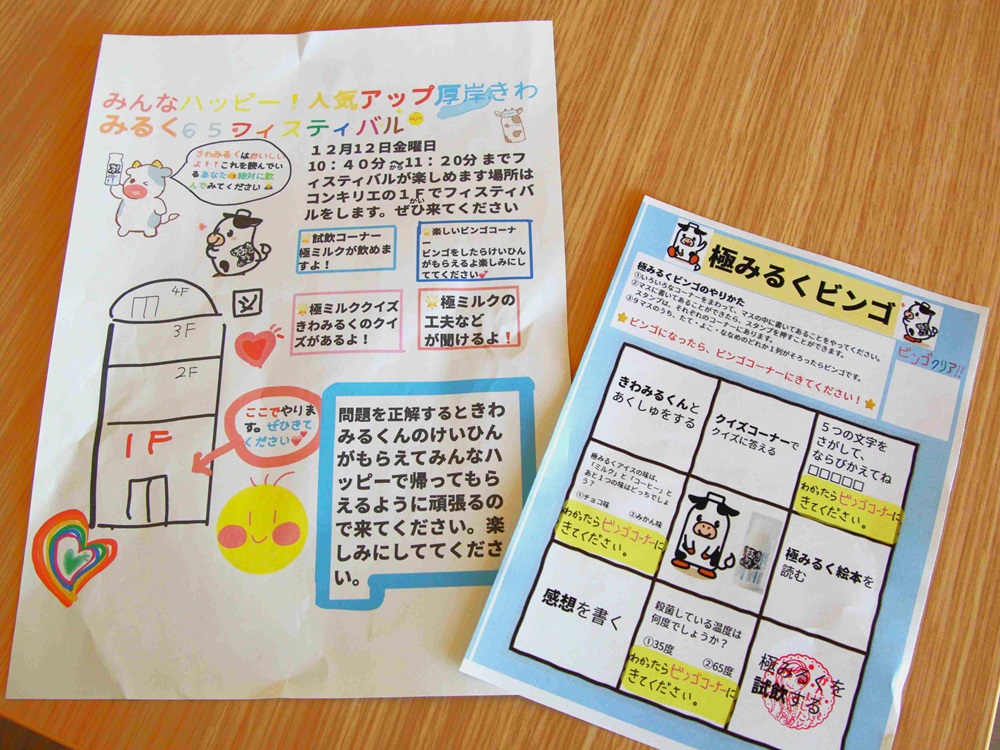 みんなハッピー！人気アップ厚岸きわ
みるく６５フィスティバル
きわみるくはおいしい
よ！？これを読んでい
るあなた絶対に飲
んでみてください
１２月１２日金曜日
１０：４０分から１１：２０分までフ
ィスティバルが楽しめます場所は
コンキリエの１Ｆでフィスティバ
ルをします。ぜひ来てください
試飲コーナー
極ミルクが飲めま
すよ！
楽しいビンゴコーナ
ー
ビンゴをしたらけいひん
がもらえるよ楽しみにし
ててください
極ミルククイズ
きわみるくのクイ
ズがあるよ！
極ミルクの
工夫など
が聞けるよ！
4F
3F
2F
1F
ここでやりま
す。ぜひきて
ください
問題を正解するときわ
みるくんのけいひん
がもらえてみんなハ
ッピーで帰ってもら
えるように頑張るの
で来てください。楽
しみにしててくださ
い。
極みるくビンゴ
極みるくビンゴのやりかた
①いろいろなコーナーをまわって、マスの中に書いてあることをやってください。
②マスに書いてあることができたら、スタンプを押すことができます。
スタンプは、それぞれのコーナーにあります。
③９マスのうち、たて・よこ・ななめのどれか１列がそろったらビンゴです。
ビンゴになったら、ビンゴコーナーにきてください！
ビンゴクリア!!
きわみるくんと
あくしゅをする
クイズコーナーで
クイズに答える
５つの文字を
さがして、
ならびかえてね
□□□□□
わかったらビンゴコーナーに
きてください。
極みるくアイスの味は、
「ミルク」と「コーヒー」と
あと１つの味はどっちでしょ
う？
①チョコ味 ②みかん味
わかったらビンゴコーナーに
きてください。
極みるく絵本を
読む
感想を書く
殺菌している温度は
何度でしょうか？
①35度 ②65度
わかったらビンゴコーナーに
きてください。
極みるくを
試飲する